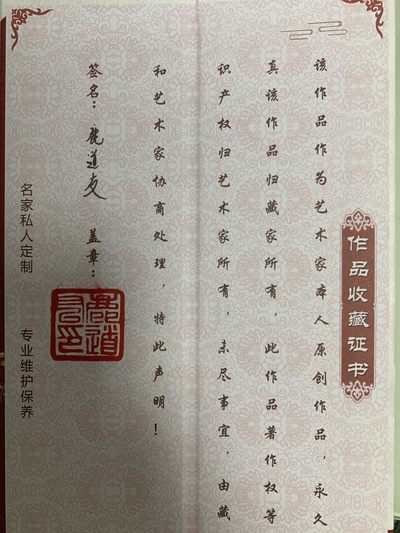 作品收藏证书
该作品作为艺术家本人原创作品，永久
真该作品归藏家所有，此作品著作权等
识产权归艺术家所有，未尽事宜，由藏
和艺术家协商处理，特此声明！
签名：道友 盖章：
名家私人定制 专业维护保养